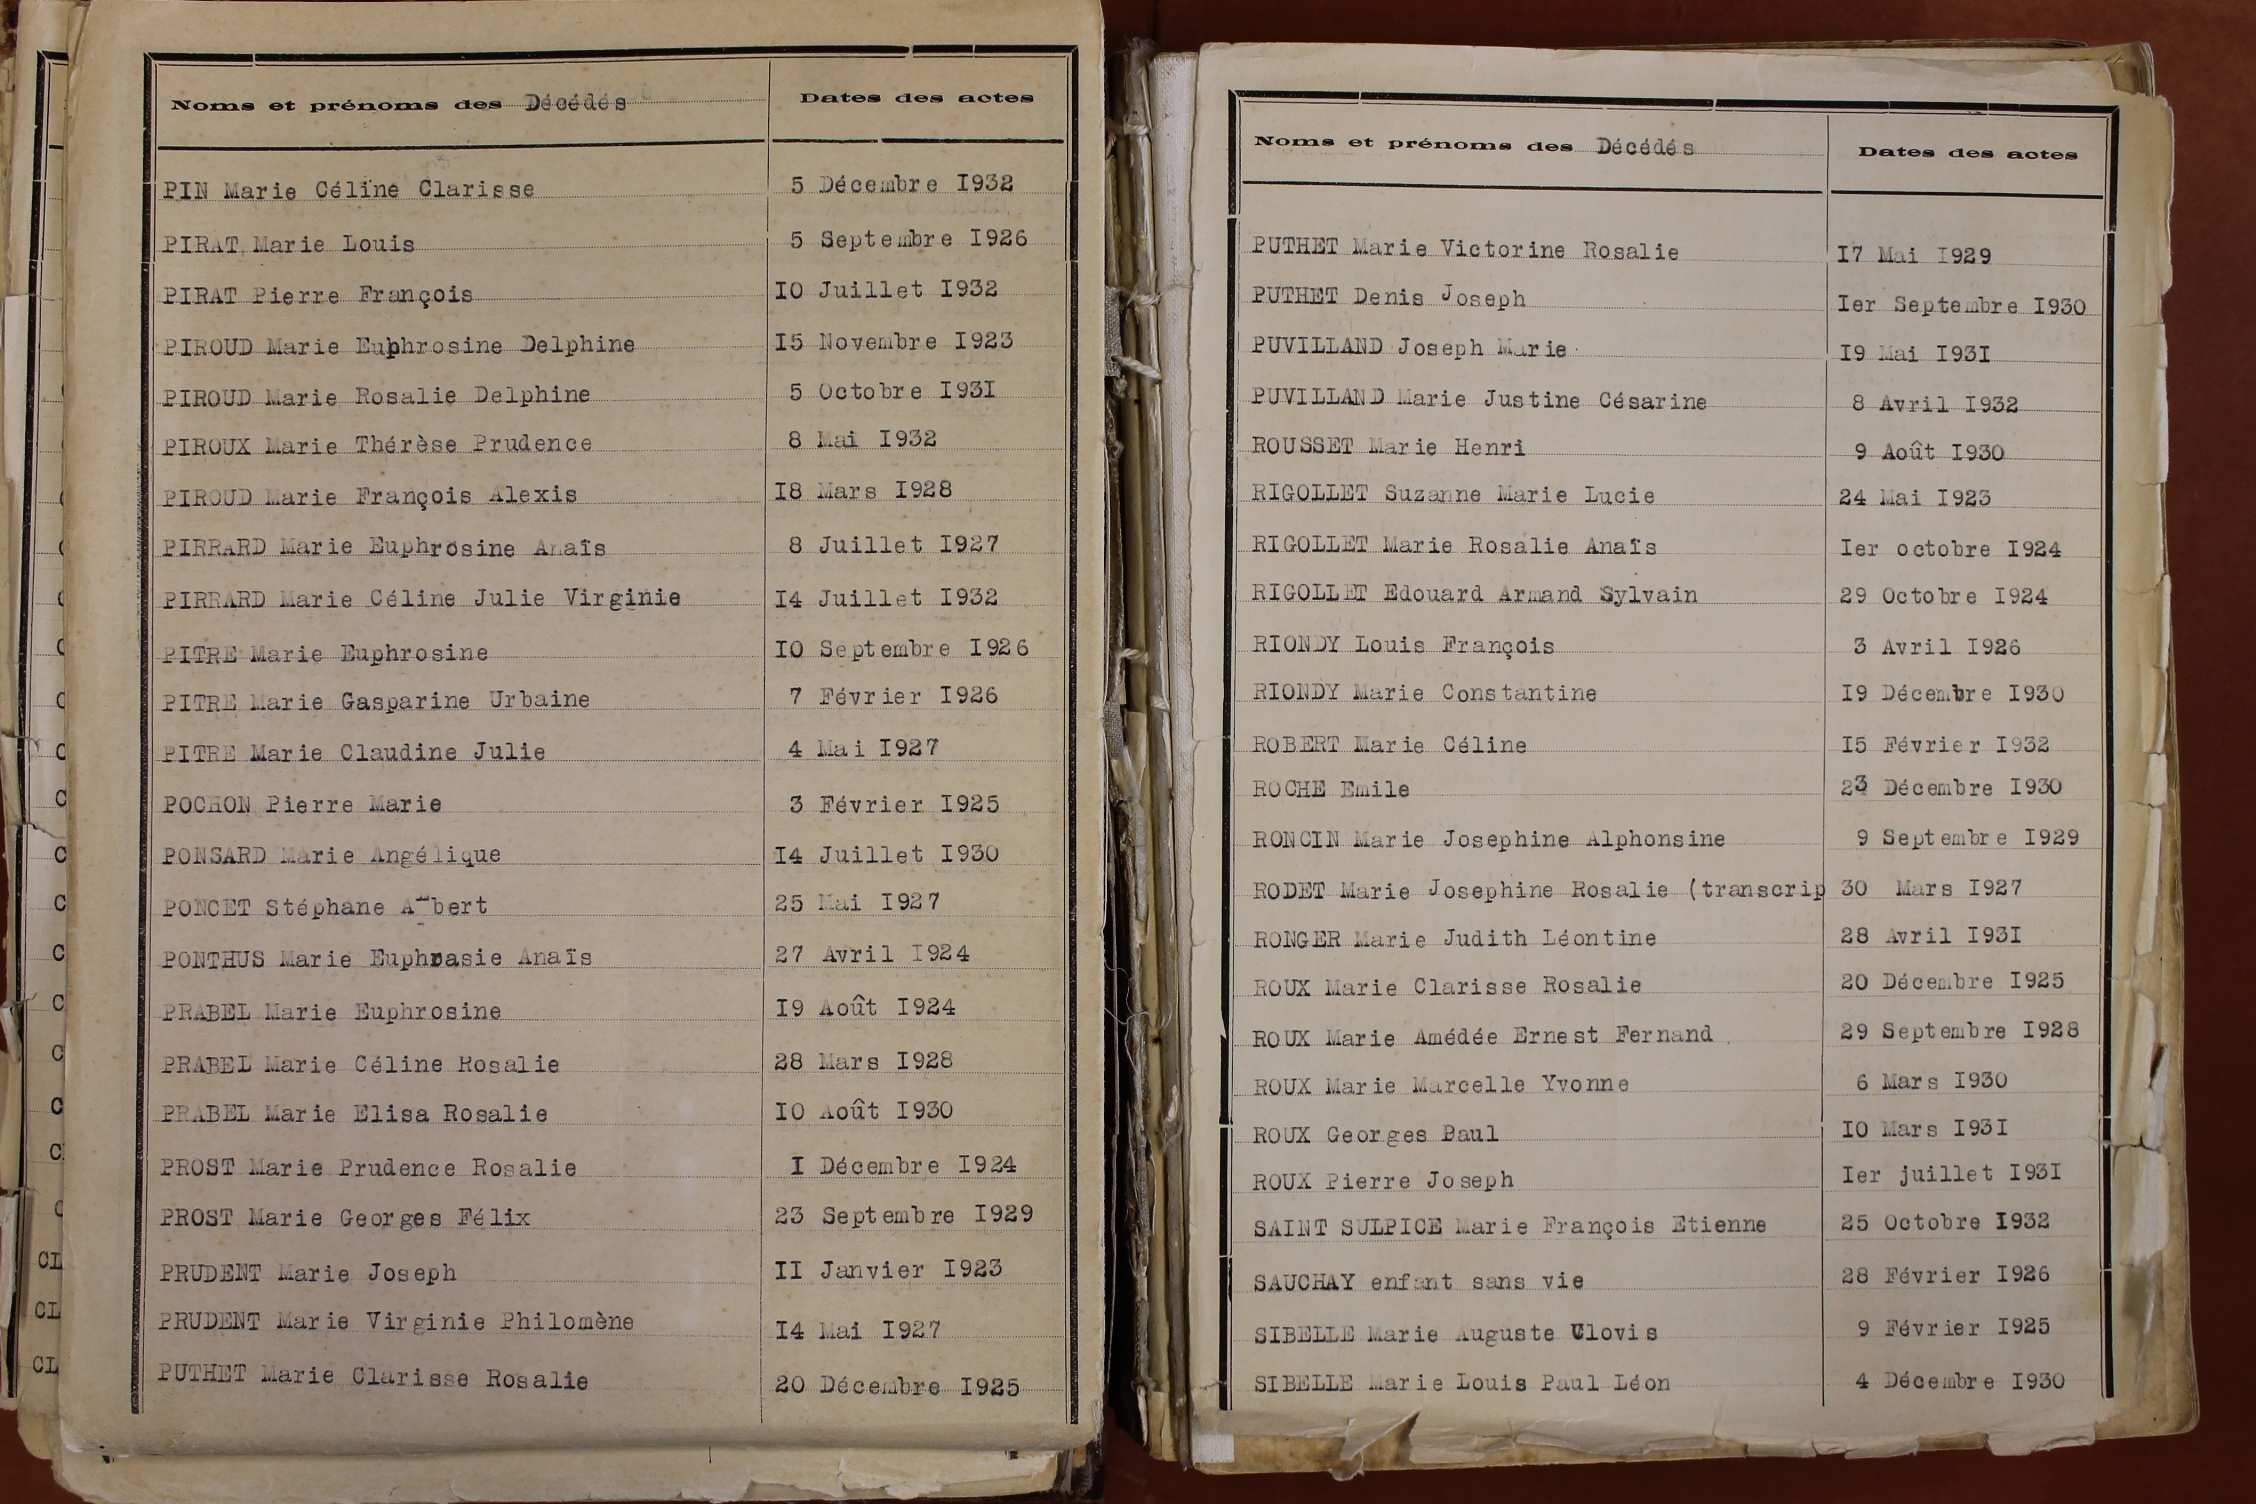 Noms et prénoms des Décédés Dates des actes
PIN Marie Céline Clarisse 5 Décembre I932
PIRAT Marie Louis 5 Septembre I926
PIRAT Pierre François IO Juillet I932
PIROUD Marie Euphrosine Delphine I5 Novembre I923
PIROUD Marie Rosalie Delphine 5 Octobre I93I
PIROUX Marie Thérèse Prudence 8 Mai I932
PIROUD Marie François Alexis I8 Mars I928
PIRRARD Marie Euphrosine Anaïs 8 Juillet I927
PIRRARD Marie Céline Julie Virginie I4 Juillet I932
PITRE Marie Euphrosine IO Septembre I926
PITRE Marie Gasparine Urbaine 7 Février I926
PITRE Marie Claudine Julie 4 Mai I927
POCHON Pierre Marie 3 Février I925
PONSARD Marie Angélique I4 Juillet I930
PONCET Stéphane 25 Mai I927
PONTHUS Marie Euphrasie Anaïs 27 Avril I924
PRABEL Marie Euphrosine I9 Août I924
PRABEL Marie Céline Rosalie 28 Mars I928
PRABEL Marie Elisa Rosalie IO Août I930
PROST Marie Prudence Rosalie I Décembre I924
PROST Marie Georges Félix 23 Septembre I929
PRUDENT Marie Joseph II Janvier I923
PRUDENT Marie Virginie Philomène I4 Mai I927
PUTHET Marie Clarisse Rosalie 20 Décembre I925
Noms et prénoms des Décédés Dates des actes
PUTHET Marie Victorine Rosalie I7 Mai I929
PUTHET Denis Joseph Ier Septembre I930
PUVILLAND Joseph Marie I9 Mai I93I
PUVILLAND Marie Justine Césarine 8 Avril I932
ROUSSET Marie Henri 9 Août I930
RIGOLLET Suzanne Marie Lucie 24 Mai I923
RIGOLLET Marie Rosalie Anaïs Ier octobre I924
RIGOLLET Edouard Armand Sylvain 29 Octobre I924
RIONDY Louis François 3 Avril I926
RIONDY Marie Constantine I9 Décembre I930
ROBERT Marie Céline I5 Février I932
ROCHE Emile 23 Décembre I930
RONCIN Marie Josephine Alphonsine 9 Septembre I929
RODET Marie Josephine Rosalie (transcrip 30 Mars I927
RONGER Marie Judith Léontine 28 Avril I93I
ROUX Marie Clarisse Rosalie 20 Décembre I925
ROUX Marie Amédée Ernest Fernand 29 Septembre I928
ROUX Marie Marcelle Yvonne 6 Mars I930
ROUX Georges Paul IO Mars I93I
ROUX Pierre Joseph Ier juillet I93I
SAINT SULPICE Marie François Etienne 25 Octobre I932
SAUCHAY enfant sans vie 28 Février I926
SIBELLE Marie Auguste Clovis 9 Février I925
SIBELLE Marie Louis Paul Léon 4 Décembre I930